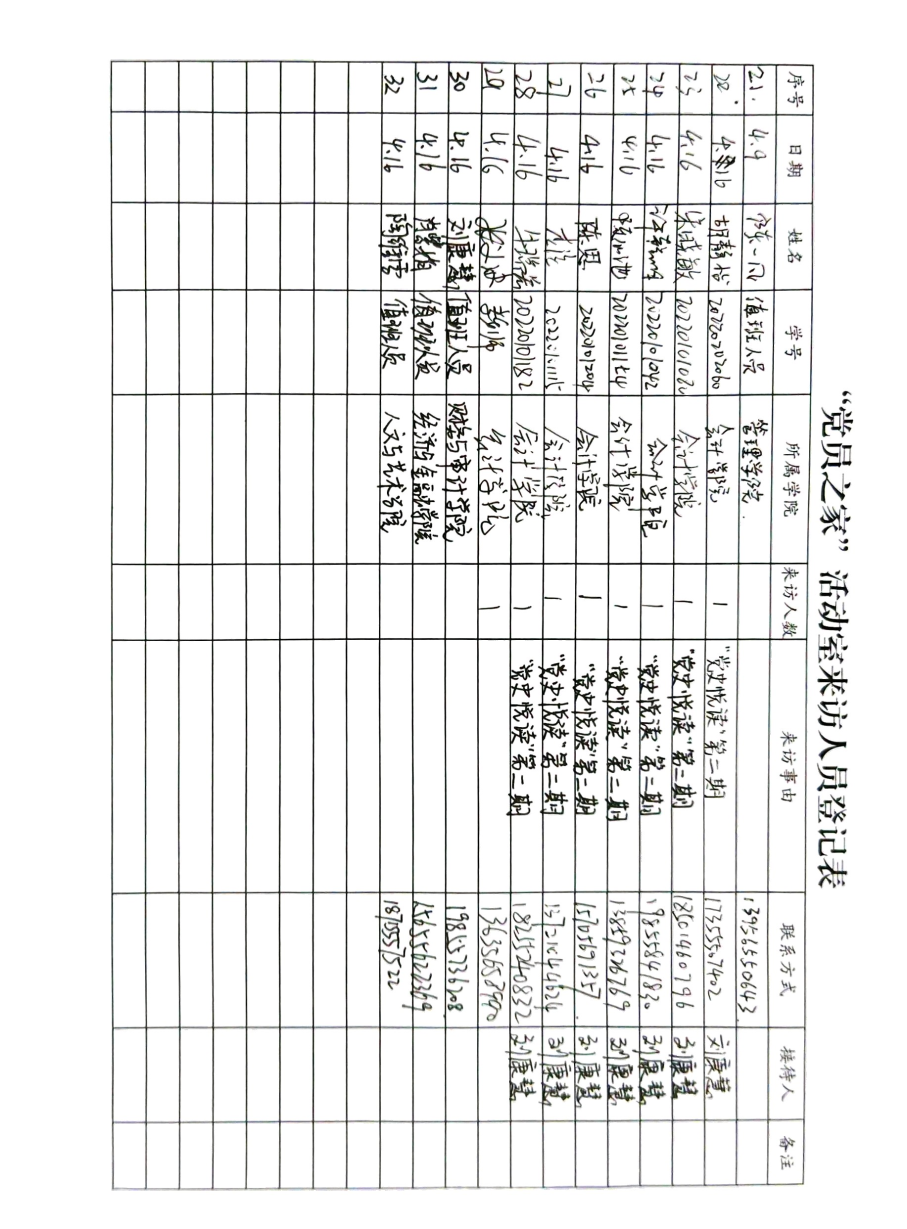 “党员之家”活动室来访人员登记表
序号 日期 姓名 学号 所属学院 来访人数 来访事由 联系方式 接待人 备注
21. 4.9 值班人员 管理学院. 13956550643.
22. 4.16 胡静怡 20220202060 会计学院 1 “党史悦读”第二期 17355507402 刘康慧
23 4.16 朱诗敏 会计学院 1 “党史悦读”第二期 18501460796 刘康慧
24 4.16 20220101042 会计学院 1 “党史悦读”第二期 19855841830 刘康慧
25 4.16 会计学院 1 “党史悦读”第二期 13859326769 刘康慧
26 4.16 陈思 会计学院 1 “党史悦读”第二期 1565691357. 刘康慧
27 4.16 会计学院 1 “党史悦读”第二期 13721044624 刘康慧
28 4.16 20220101182 会计学院 1 “党史悦读”第二期 18255240832 刘康慧
29 4.16 会计学院 1
30 4.16 刘康慧 值班人员 财会与审计学院 19855736208
31 4.16 值班人员 经济与金融学院 15655627369
32 4.16 陶雅雯 值班人员 人文与艺术学院 18705557522